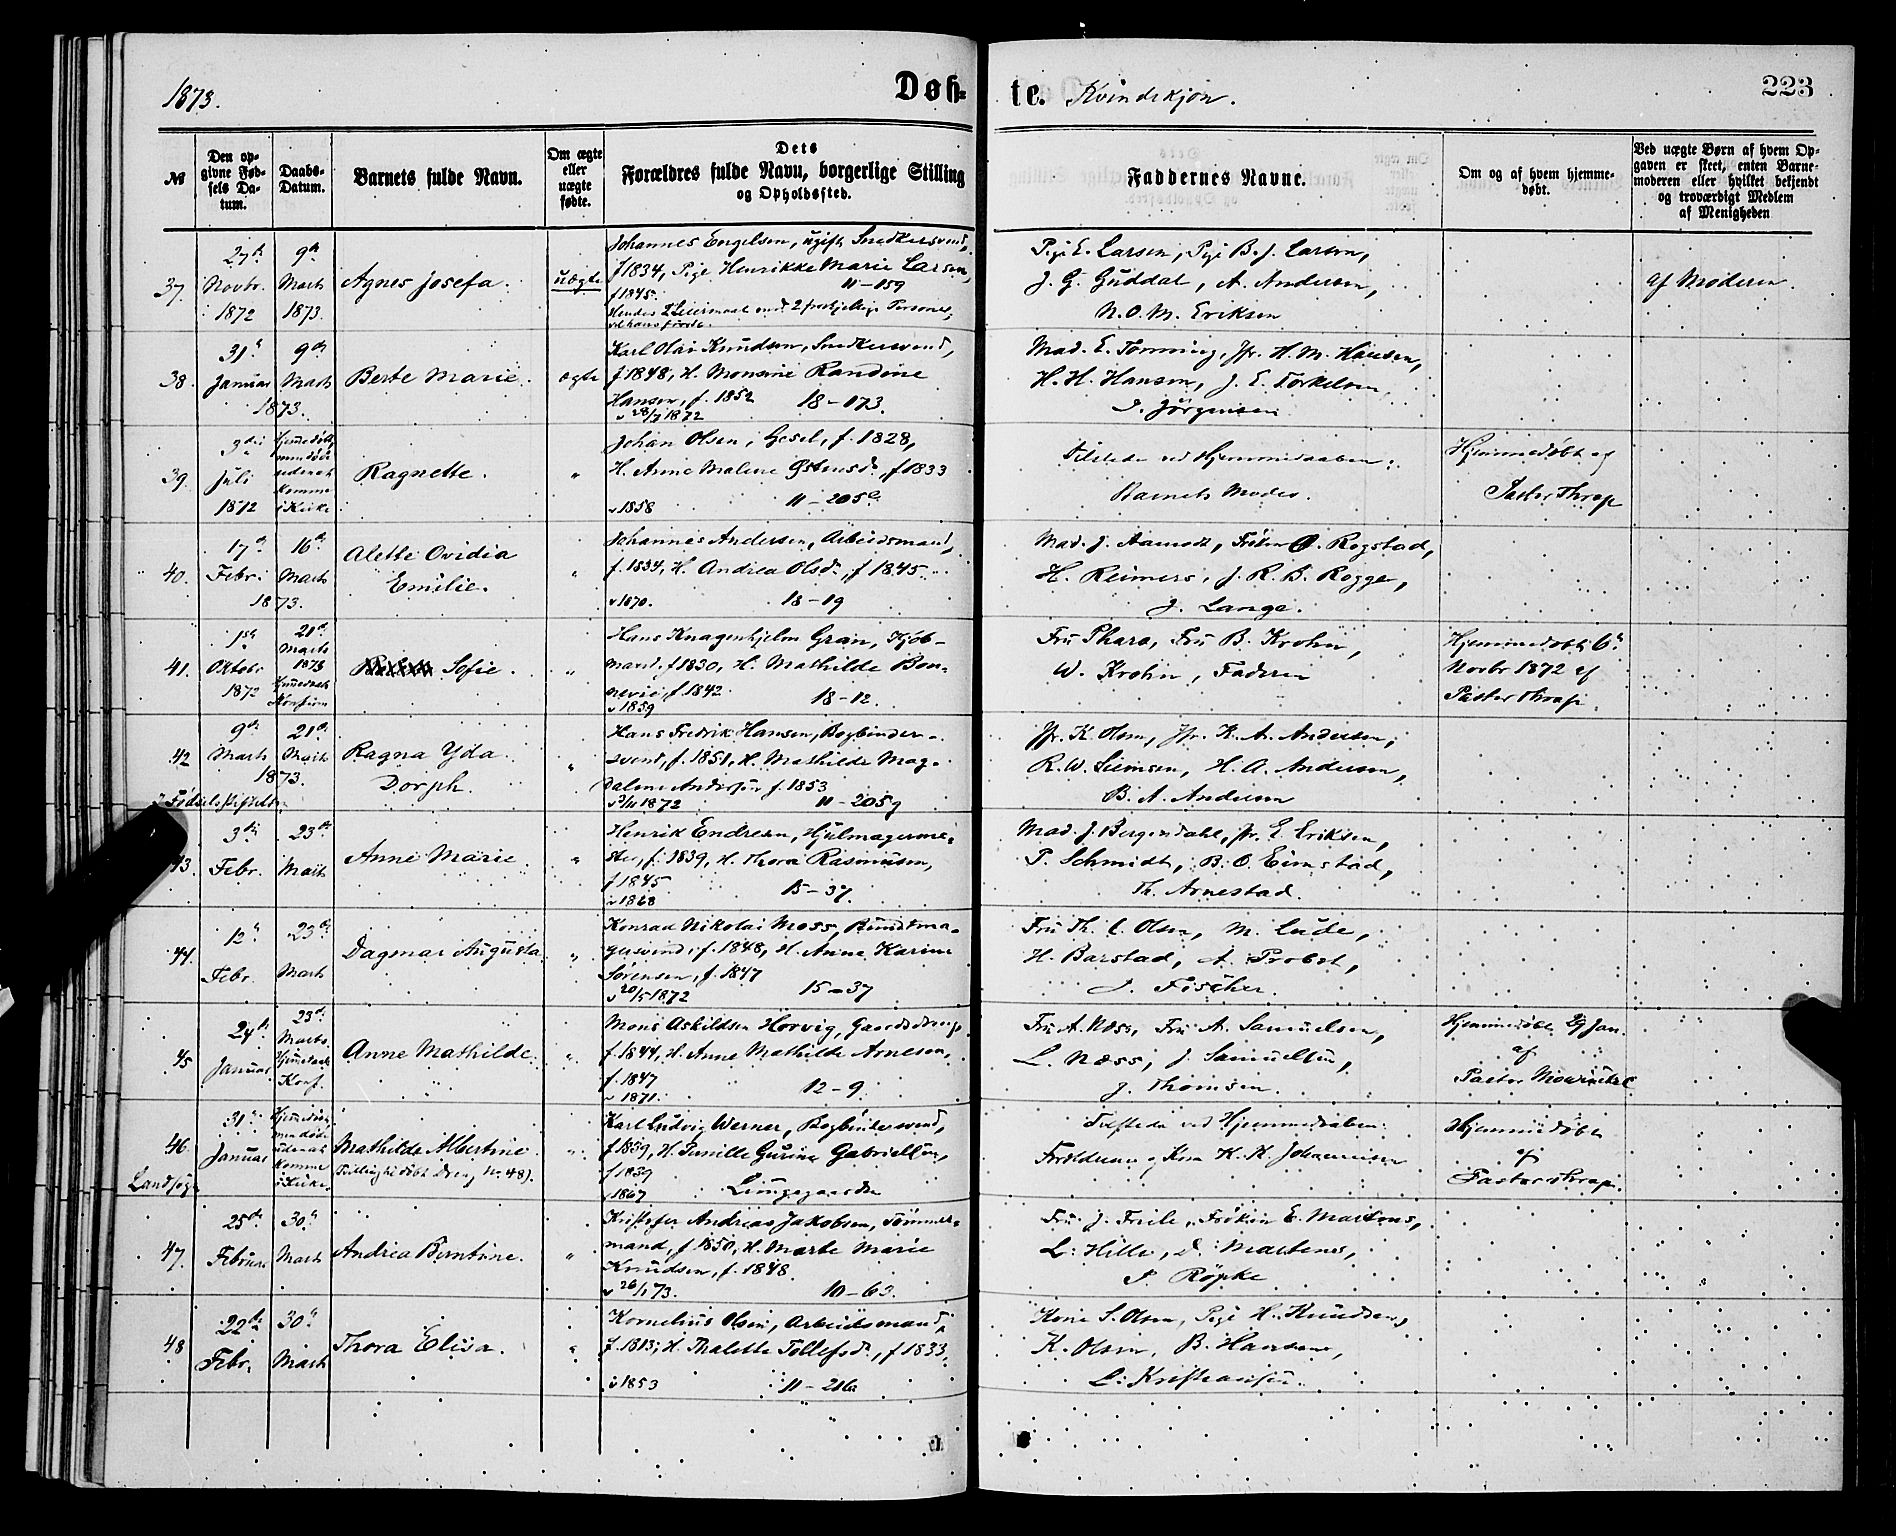 1873.
Døb-
te. Kvindekjøn.
223
№
Den op-
givne Fød-
sels Da-
tum.
Daabs-
Datum.
Barnets fulde Navn.
Om ægte
eller
uægte
fødte.
Dets
Forældres fulde Navn, borgerlige Stilling
og Opholdssted.
Faddernes Navne.
Om og af hvem hjemme-
døbt.
Ved uægte Børn af hvem Op-
gaven er skeet, enten Barne-
moderen eller hvilket bekjendt
og troværdigt Medlem
af Menigheden
37.
27de
Novbr.
1872
9de
Marts
1873.
Agnes Josefa.
uægte
Johannes Engelsen, ugift Snedkersvend,
f 1834, Pige Henrikke Marie Larsen,
f 1845. 11-159
Hendes 2 Leiermaal med 2 forskjellige Personer,
Pige E. Larsen, Pige B. J. Larsen,
J. G. Guddal, A. Andersen,
N. O. M. Eriksen
af Moderen.
38.
31te
Januar
1873.
9de
Marts
Berte Marie.
ægte
Karl Olai Knudsen, Snedkersvend,
f 1848, H. Monsine Randine
Hansen, f. 1852 18-173.
v 28/7 1872
Mad. E. Tønning, Jfr. H. M. Hansen,
H. H. Hansen, J. E. Torkelsen,
J. Jørgensen
39.
3die
Juli
1872
Hjemmedøbt,
men døde
uden at
komme
i Kirke
Ragnette.
"
Johan Olsen, Gesel, f. 1828,
H. Anne Malene Østensd., f 1833
v 1858 11-205
Tilstede ved Hjemmedaaben:
Barnets Moder.
Hjemmedøbt af
Pastor Thrap
40.
17de
Febr.
1873.
16de
Marts
Alette Ovidia
Emilie.
"
Johannes Andersen, Arbeidsmand,
f. 1834, H. Andrea Olsd., f 1845.
v 1870. 18-19
Mad. J. Aamodt, Frøken O. Rogstad,
H. Reimers, J. R. B. Rogge,
J. Lange.
41.
1ste
Oktobr
1872
21de
Marts
1873
Sofie.
"
Hans Knagenhjelm Gran, Kjøb-
mand, f 1830, H. Mathilde Bon-
nevie, f. 1842. 18-12.
v 1859
Fru Phara, Fru B. Krohn,
W. Krohn, Faderen
Hjemmedøbt 6te
Novbr 1872 af
Pastor Thrap.
42
9de
Marts
1873.
21de
Marts
Ragna Yda
Dorph.
"
Hans Fredrik Hansen, Bogbinder-
svend, f. 1851, H. Mathilde Mag-
dalene Andersen f. 1853
v 3/11 1872 11-2059
Jfr. K. Olsen, Jfr. K. A. Andersen,
R. W. Siemsen, H. A. Andersen,
B. A. Andersen
3.
3die
Febr.
23de
Marts
Anne Marie.
"
Henrik Endresen, Hjulmagerme-
ster, f. 1839, H. Thora Rasmussen,
f 1845 15-37.
v 1868
Mad. J. Bergendahl, Jfr. E. Eriksen,
P. Schmidt, B. O. Eimstad,
Th. Arnestad.
44.
12te
Febr.
23de
Marts
Dagmar Augusta
"
Konrad Nikolai Moss, Buntma-
gersvend, f. 1848, H. Anne Karine
Sørensen, f. 1847
v 20/5 1872 15-37
Fru Th. C. Olsen, M. Lude,
H. Barstad, A. Probst,
J. Fischer.
45
24de
Januar
23de
Marts
Hjemmed.
Konf.
Anne Mathilde.
"
Mons Askildsen Horvig, Gaardsdreng
f. 1844, H. Anne Mathilde Arnesen,
f. 1847 12-9.
v 1871.
Fru A. Næss, Fru A. Samuelsen,
L. Næss, J. Samuelsen,
J. Thomsen.
Hjemmedøbt 29 Jan.
af
Pastor Mowinckel
46.
Landsogn
31te
Januar
Hjemmedøbt,
men døde
uden at
komme
i Kirke.
Mathilde Albertine.
(Tvilling til døbt dreng No. 48).
"
Karl Ludvig Werner, Bogbindersvend,
f 1839, H. Pernille Gurine Gabrielsen,
f 1839
v 1867 Lungegaarden
Tilstede ved Hjemmedaaben:
Forældrene, Kone K. K. Johannesen
Hjemmedøbt
af
Pastor Thrap.
47.
25de
Februar
30te
Marts
Andrea Berntine.
"
Kristofer Andreas Jakobsen, Tømmer-
mand, f 1850, H. Marte Marie
Knudsen, f. 1848.
v 26/1 73. 10-63.
Fru J. Friele, Frøken E. Martens,
L. Hille, D. Martens,
P. Røpke
48
22de
Febr.
30te
Marts
Thora Elisa.
"
Kornelius Olsen, Arbeidsmand,
f. 1813, H. Thalette Tollefsd., f 1833,
v 1853 11-216
Kone S. Olsen, Pige H. Knudsen,
K. Olsen, B. Hansen,
L. Kristiansen.